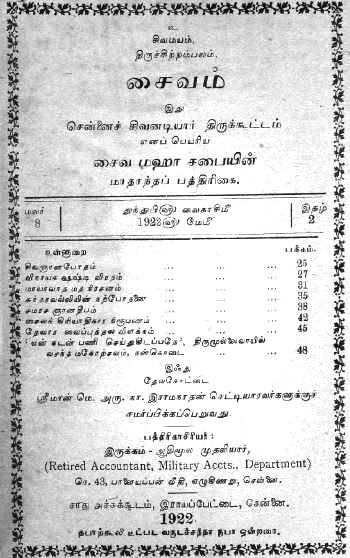 உ
சிவமயம்.
திருச்சிற்றம்பலம்.
சைவம்
இது
சென்னைச் சிவனடியார் திருக்கூட்டம்
எனப் பெயரிய
சைவ மஹா சபையின்
மாதாந்தப் பத்திரிகை.
மலர் 8
துந்துபி௵ வைகாசி௴ 1922௵ மே௴
இதழ் 2
உள்ளுறை பக்கம்.
சிவஞானபோதம் ... ... ... 25
விநாயக ஷஷ்டி விரதம் ... ... ... 27
மாயாவாத மத நிரசனம் ... ... ... 31
சுந்தரவல்லியின் கற்போதனை ... ... ... 35
சமரச ஞானதீபம் ... ... ... 38
சைவக் கிரியாதிகார நிரூபணம் ... ... ... 42
தேவார வைப்புத்தல விளக்கம் ... ... ... 45
'என் கடன் பணி செய்துகிடப்பதே', திருமுல்லைவாயில்
வசந்த மகோற்சவம், நன்கொடை ... ... 48
இஃது
தேவகோட்டை
ஸ்ரீமான் மெ. அரு. கா. இராமநாதன் செட்டியாரவர்களுக்குச்
சமர்ப்பிக்கப்பெறுவது.
பத்திரிகாசிரியர்:
இருக்கம் - ஆதிமூல முதலியார்,
(Retired Accountant, Military Accts., Department)
செ. 43, பாளையப்பன் வீதி, எழுகிணறு, சென்னை.
சாது அச்சுக்கூடம், இராயப்பேட்டை, சென்னை.
1922
தபாற்கூலி உட்பட வருடச்சந்தா ரூபா ஒன்றரை.